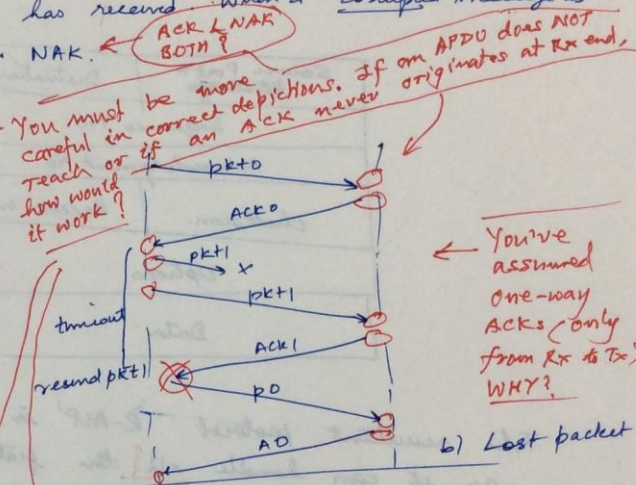 has received. When a
NAK. ← ACK & NAK
BOTH?
- You must be more
careful in correct depictions. If an APDU does NOT
reach or if an ACK never originates at Rx end,
how would
it work?
pkt0
ACK0
pkt1
x
pkt1
timiout
ACK1
resend pkt1
p0
A0
← You've
assumed
one-way
ACKs (only
from Rx to Tx)
WHY?
b) Lost packet